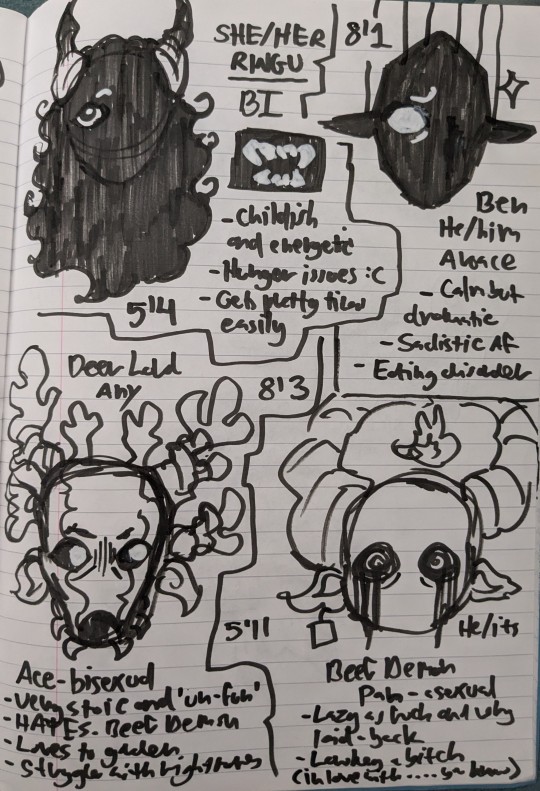 SHE/HER
RINGU
BI
- Childish
and energetic
- Hunger issues :c
- Gets pretty
easily
5'4
8'1
Ben
He/him
Aroace
- Calm but
dramatic
- Sadistic AF
- Eating disorder
Deer
Any
8'3
Ace-bisexual
- Very stoic and 'un-fun'
- HATES. Beef Demon
- Loves to garden
- Struggle with
5'11
He/its
Beef Demon
Pan-asexual
- Lazy as fuck and very
laid-back
- Lowkey a bitch
(in love with ....